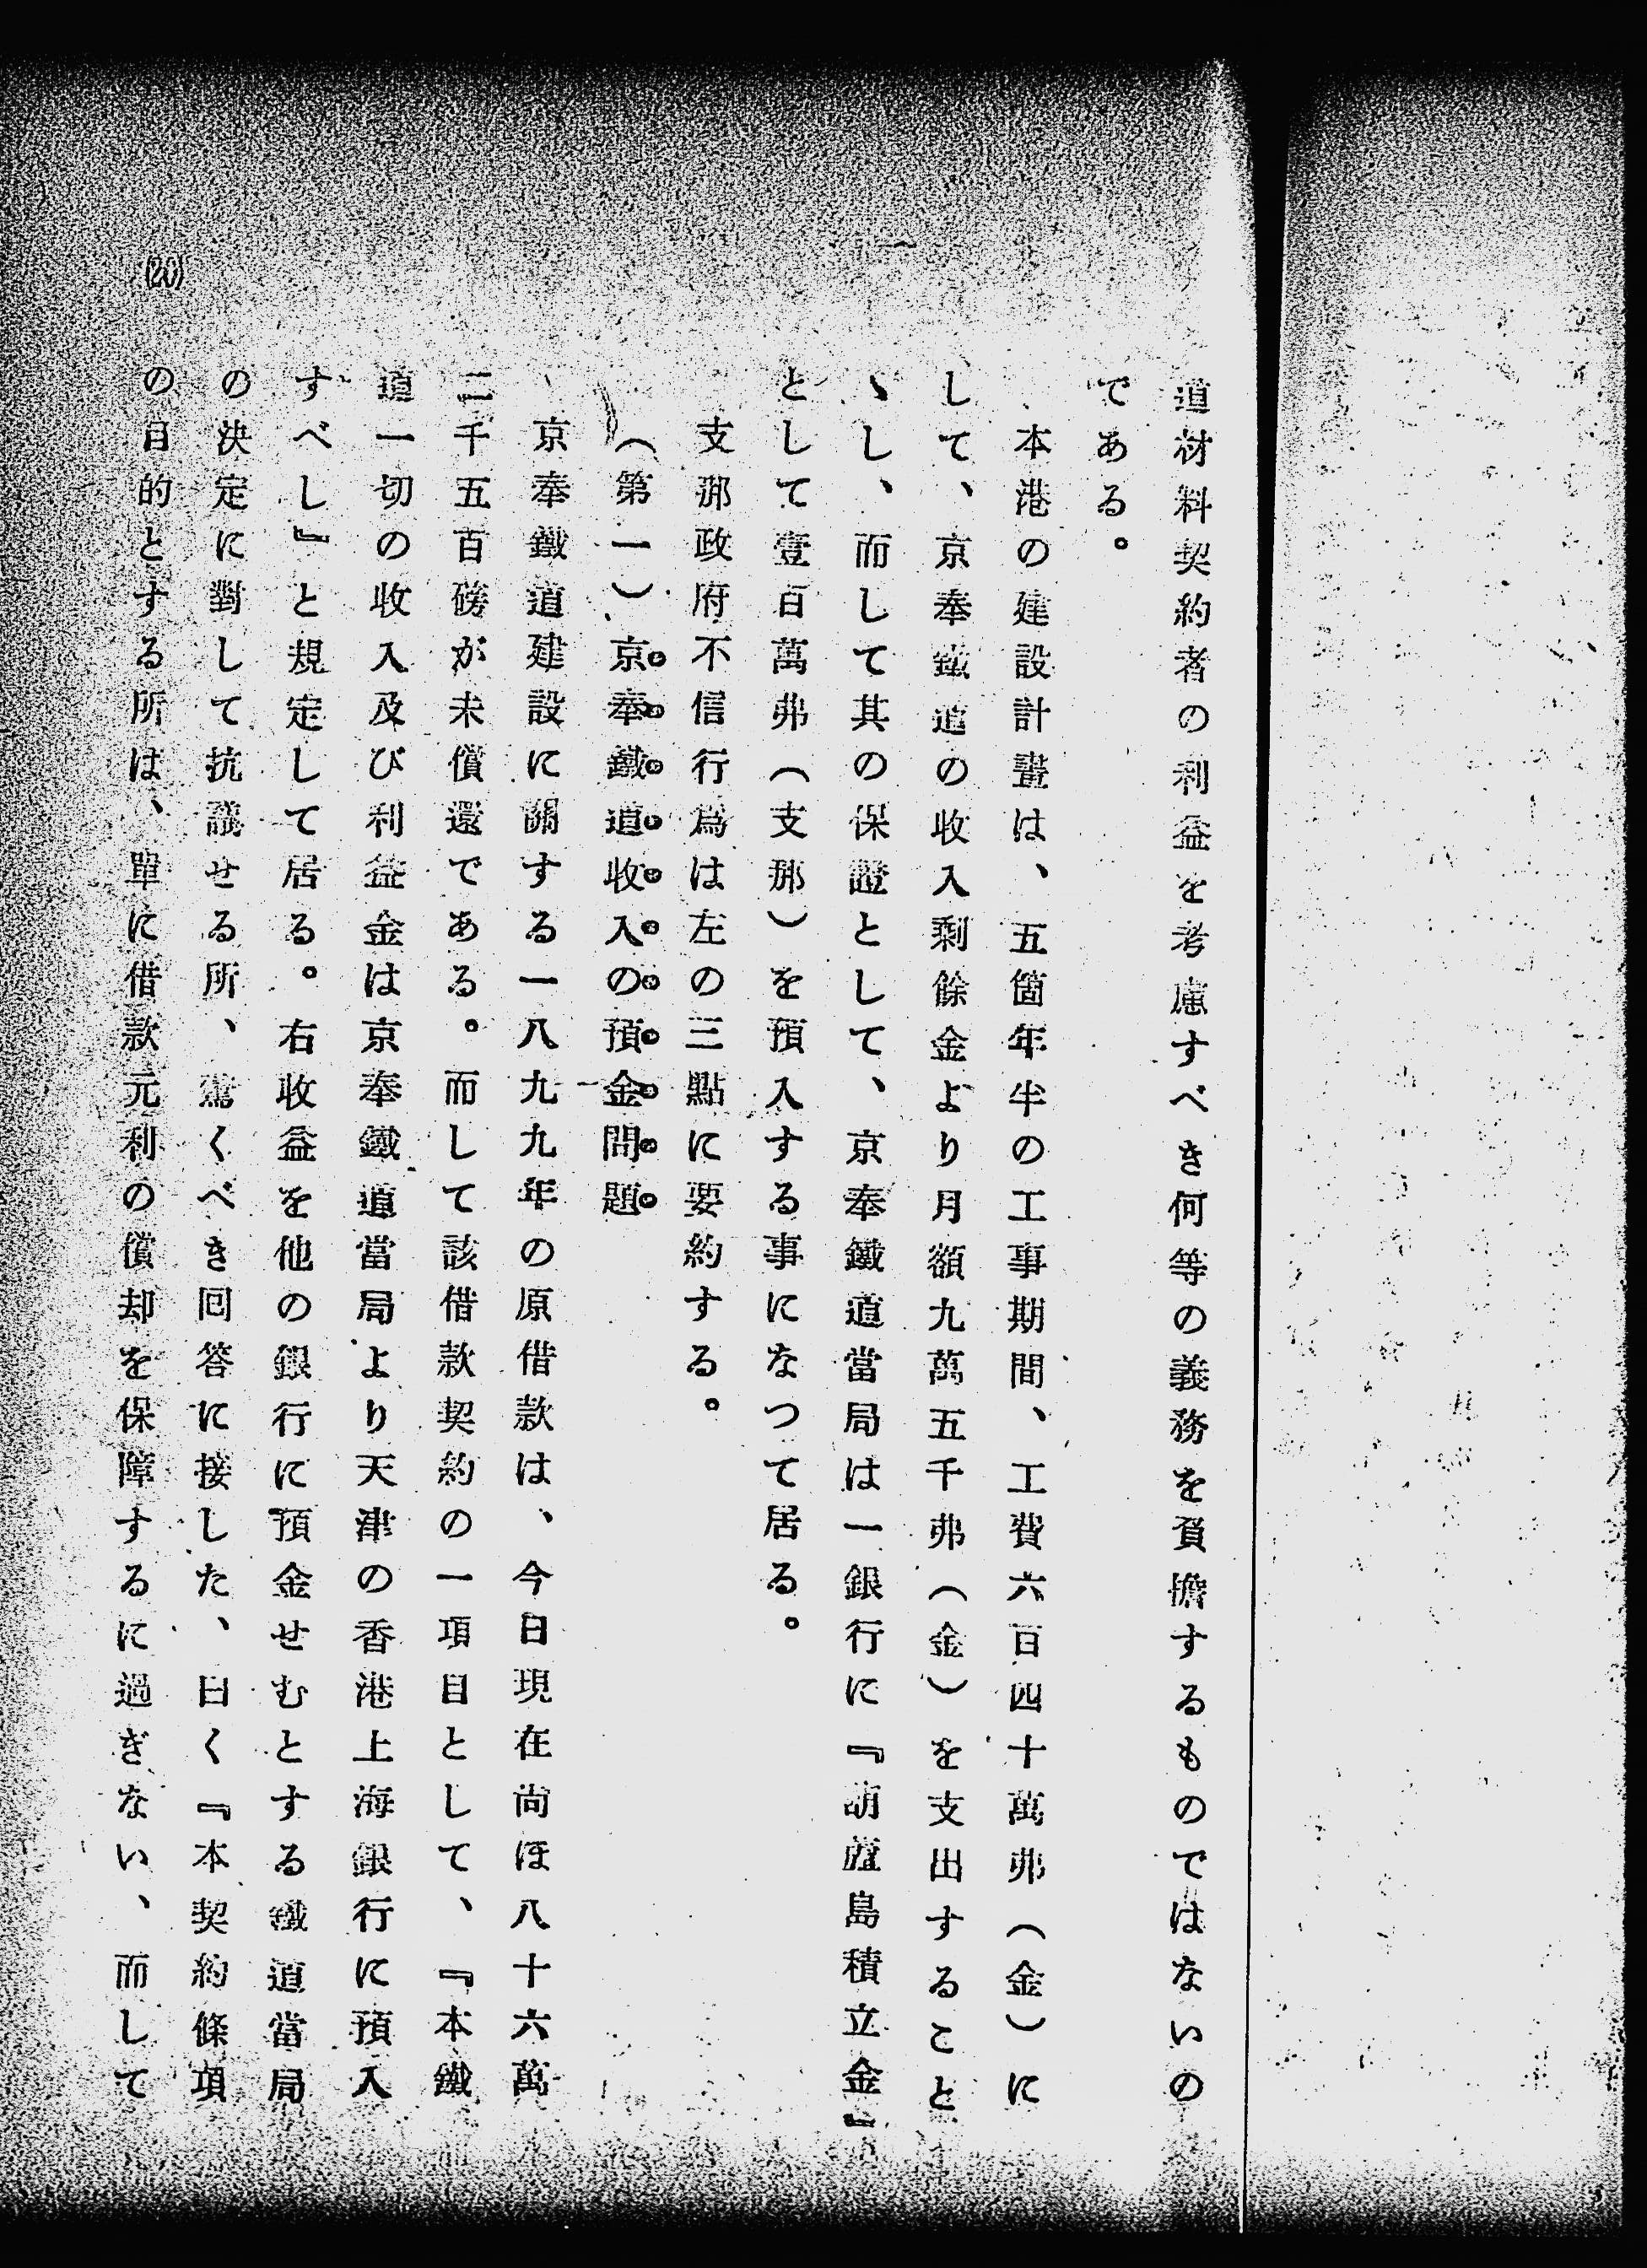 道材料契約者の利益を考慮すべき何等の義務を負擔するものではないの
である。
本港の建設計畫は、五箇年半の工事期間、工費六百四十萬弗（金）に
して、京奉鐵道の收入剩餘金より月額九萬五千弗（金）を支出すること
ゝし、而して其の保證として、京奉鐵道當局は一銀行に『葫蘆島積立金』
として壹百萬弗（支那）を預入する事になつて居る。
支那政府不信行爲は左の三點に要約する。
（第一）京奉鐵道收入の預金問題
京奉鐵道建設に關する一八九九年の原借款は、今日現在尚ほ八十六萬
二千五百磅が未償還である。而して該借款契約の一項目として、『本鐵
道一切の收入及び利益金は京奉鐵道當局より天津の香港上海銀行に預入
すべし』と規定して居る。右收益を他の銀行に預金せむとする鐵道當局
の決定に對して抗議せる所、驚くべき回答に接した、曰く『本契約條項
の目的とする所は、單に借款元利の償却を保障するに過ぎない、而して
(20)